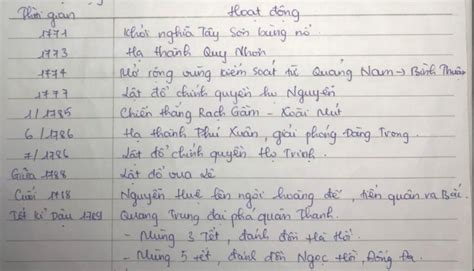 Thời gian Hoạt động
1771 Khởi nghĩa Tây Sơn bùng nổ.
1773 Hạ thành Quy Nhơn
1774 Mở rộng vùng kiểm soát từ Quảng Nam → Bình Thuận
1777 Lật đổ chính quyền họ Nguyễn
1/1785 Chiến thắng Rạch Gầm - Xoài Mút
6/1786 Hạ thành Phú Xuân, giải phóng Đàng Trong.
7/1786 Lật đổ chính quyền họ Trịnh.
Giữa 1788 Lật đổ vua Lê
Cuối 1788 Nguyễn Huệ lên ngôi hoàng đế, tiến quân ra Bắc.
Tết Kỉ Dậu 1789 Quang Trung đại phá quân Thanh.
- Mùng 3 Tết, đánh đồn Hà Hồi.
- Mùng 5 tết, đánh đồn Ngọc Hồi, Đống Đa.